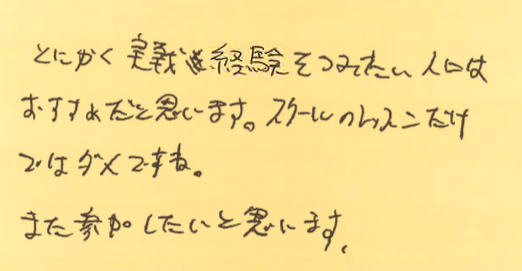 とにかく実義経験をつみたい人には
おすすめだと思います。スクールのレッスンだけ
ではダメですね。
また参加したいと思います。